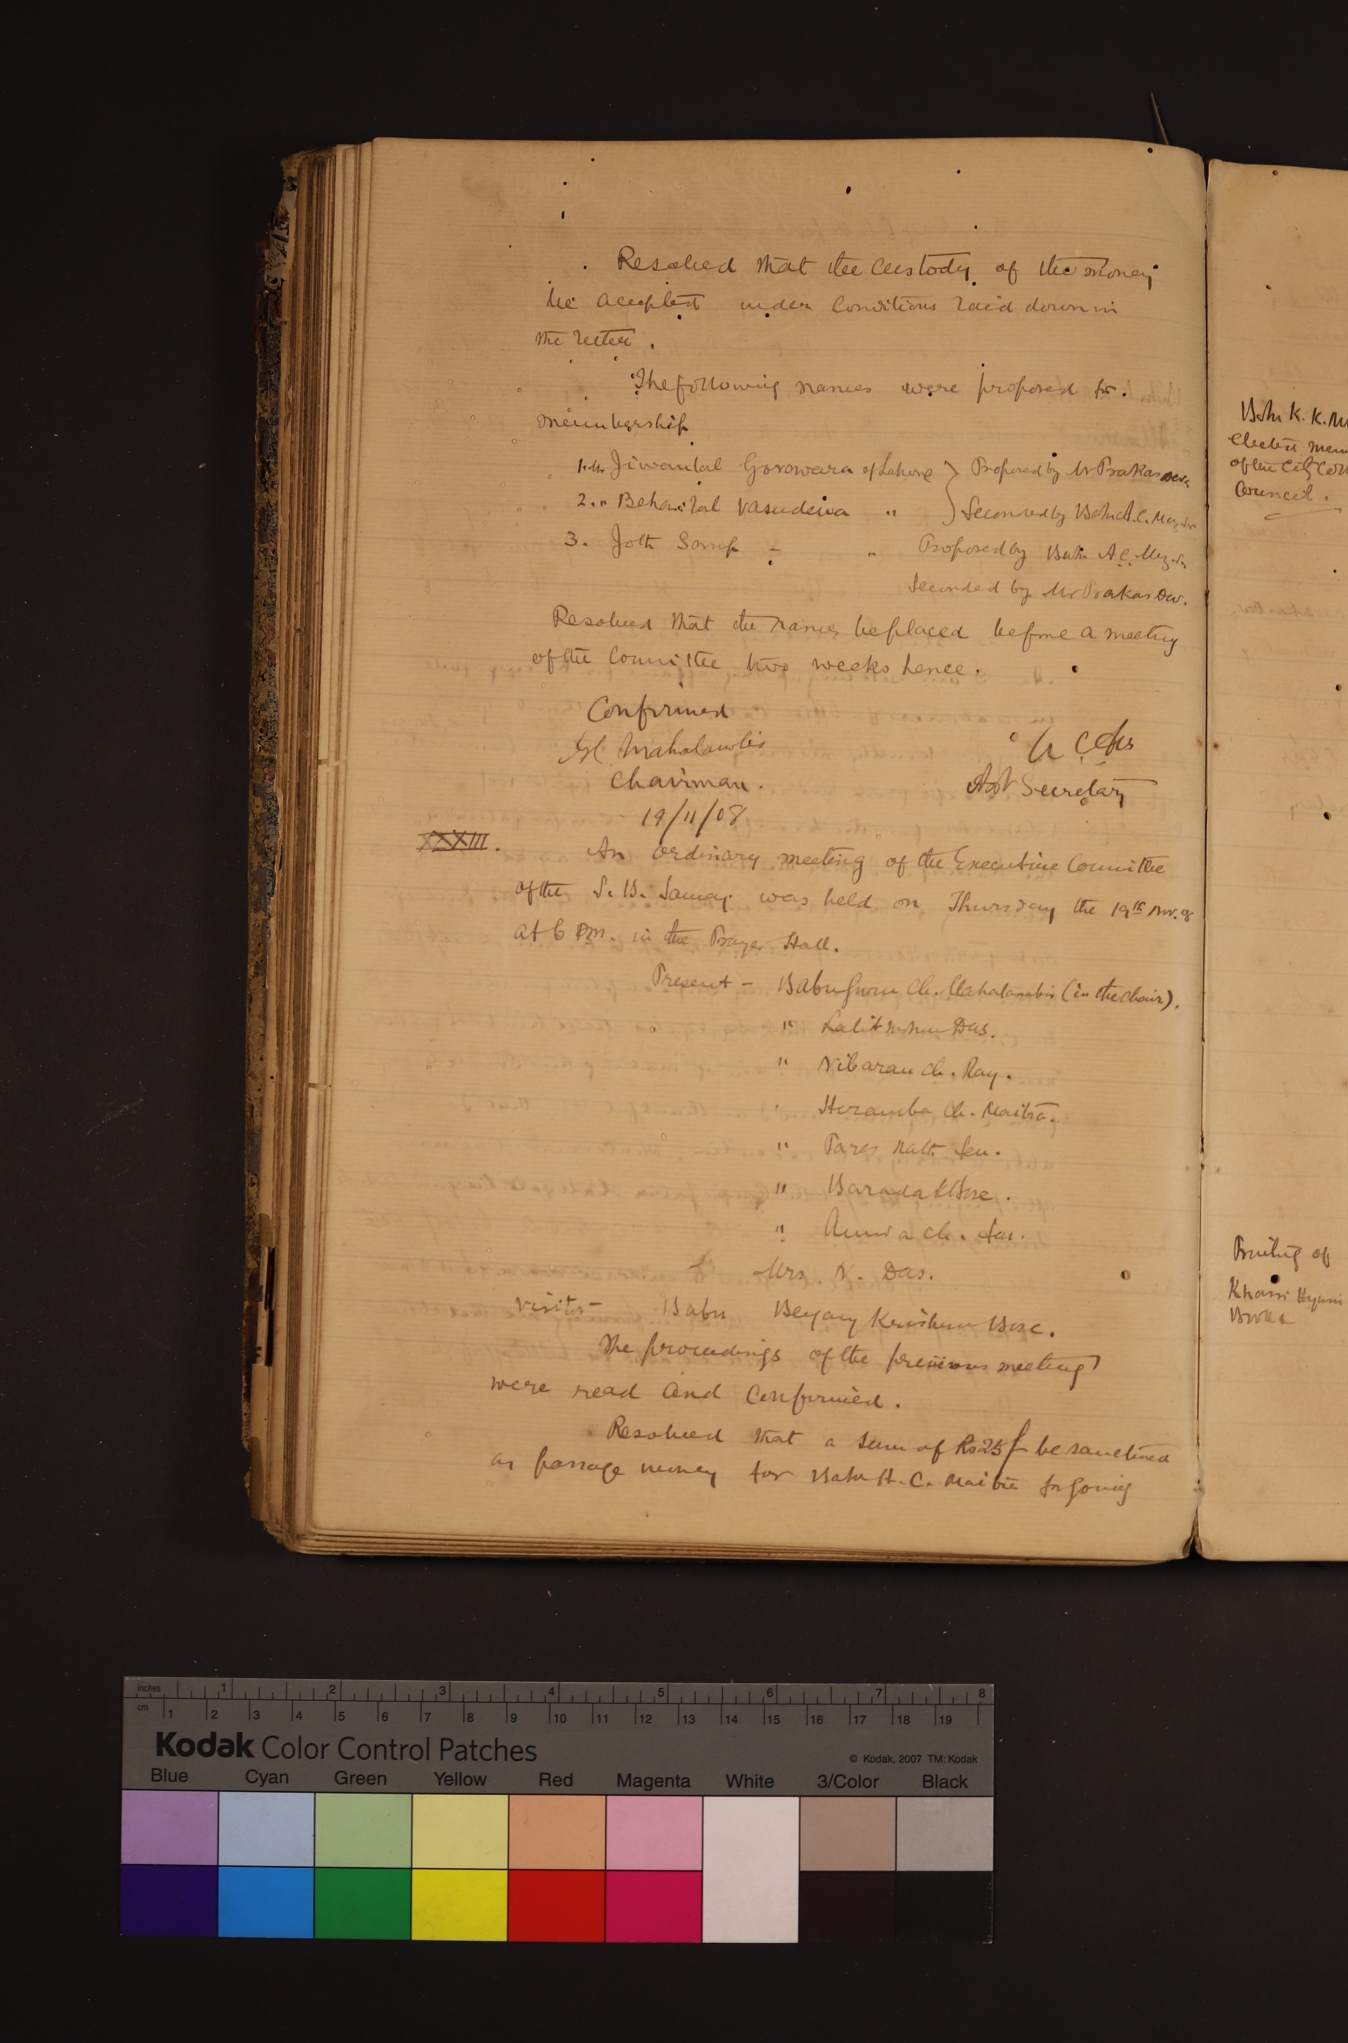 Resolved that the Custody of the money
be accepted under Conditions laid down in
the letter.
The following names were proposed for
membership
1. Mr Jiwanlal Gorowara of Lahore } Proposed by Mr Prakas Dev.
2. " Beharilal Vasudeva " } Seconded by Babu A.C. Mazdr
3. Joth Sarup - " Proposed by Babu A.C. Mazdr.
Seconded by Mr Prakas Dev.
Resolved that the names be placed before a meeting
of the Committee two weeks hence.
Confirmed
G C Mahalanobis
Chairman.
Asst Secretary
19/11/08
XXXIII.
An ordinary meeting of the Executive Committee
of the S. B. Samaj was held on Thursday the 19th Nov. 08
at 6 P.M. in the Prayer Hall.
Present - Babu Guru Ch. Mahalanobis (in the chair).
" Lalit Mohun Das.
" Nibaran Ch. Ray.
" Heramba Ch. Maitra.
" Pares Nath Sen.
" Barada Bose.
" Ch.
Mrs. N. Das.
Visitor - Babu Krishna Bose.
The proceedings of the previous meeting
were read and Confirmed.
Resolved that a sum of Rs 25/- be sanctioned
as passage money for Babu H. C. Maitra for going
Babu K. K. M
elected mem
of the City Coll
Council.
Printing of
Khassi Hymn
Book
inches 1 2 3 4 5 6 7 8
cm 1 2 3 4 5 6 7 8 9 10 11 12 13 14 15 16 17 18 19
Kodak Color Control Patches
© Kodak, 2007 TM: Kodak
Blue Cyan Green Yellow Red Magenta White 3/Color Black